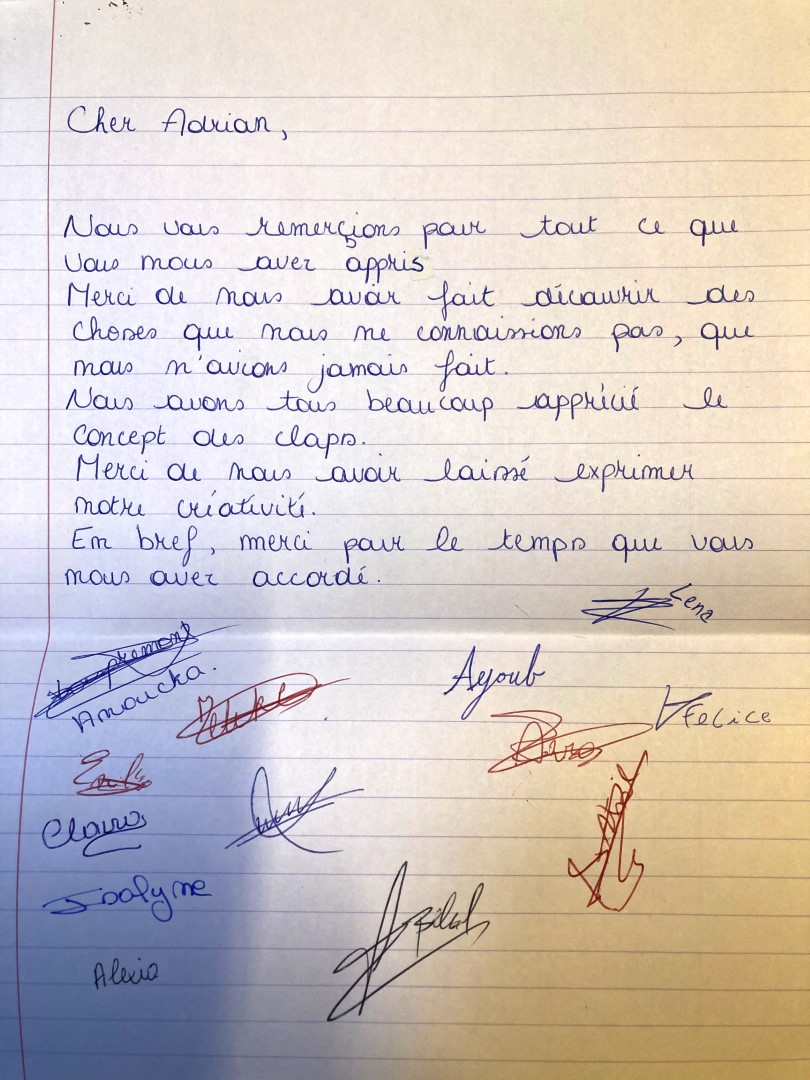 Cher Adrian,
Nous vous remerçions pour tout ce que
vous nous avez appris
Merci de nous avoir fait découvrir des
choses que nous ne connaissions pas, que
nous n'avions jamais fait.
Nous avons tous beaucoup apprécié le
concept des claps.
Merci de nous avoir laissé exprimer
notre créativité.
En bref, merci pour le temps que vous
nous avez accordé.
Lena
Anoucka.
Ayoub
Felice
Clara
Joalyne
Alexia